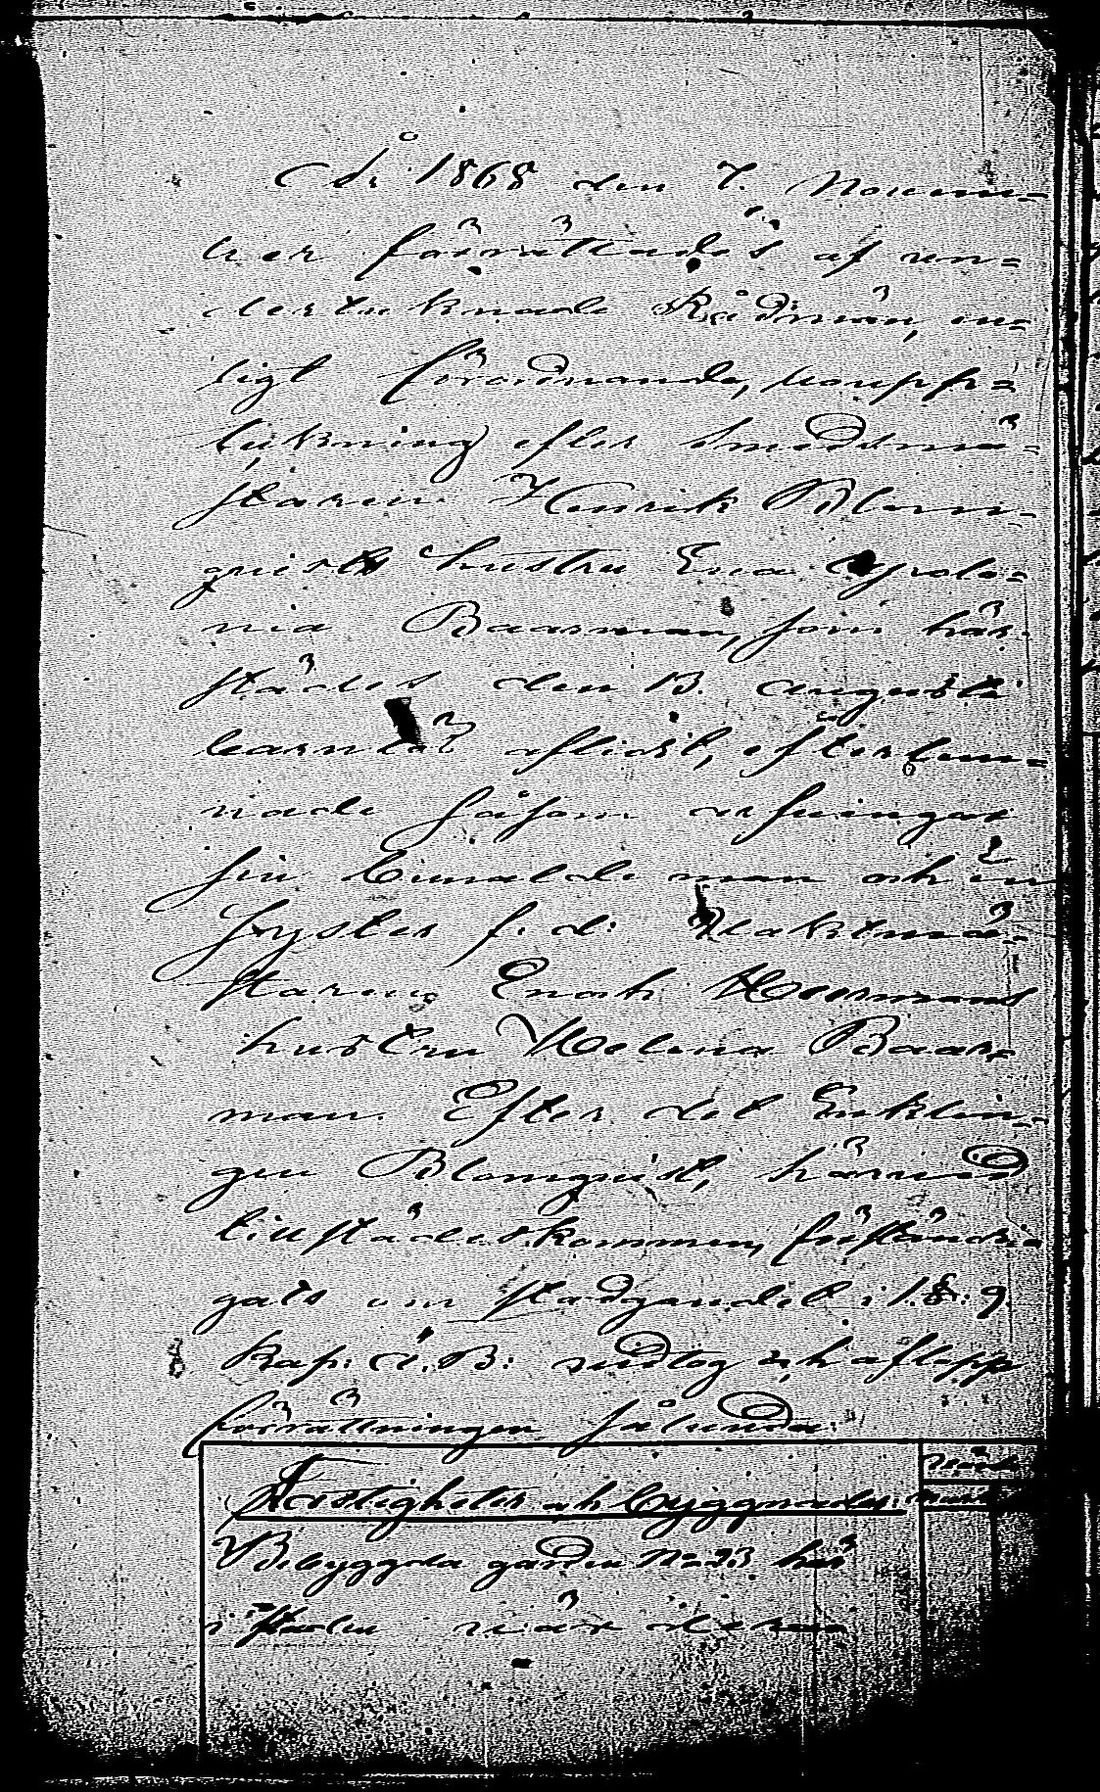 År 1868 den 7. Novem=
ber förrättades af un=
dertecknade Rådmän, en=
ligt förordnande, bouppt=
teckning efter Smedsmä=
staren Henrik Blom=
quists hustru Eva
nia Baarman, som här=
städes den 13. Augusti
barnlös aflidit, efterlem=
nade såsom arfvingar
sin man och en
Syster f. d. Vaktmä=
staren Enoch Heermans
hustru Helena Baar=
man. Efter det Enklin=
gen Blomqvist, härvid
tillstädeskommen, förständi=
gats om stadgandet i 1. §. 9.
Kap: Ä. B: vidtog och aflopp
förrättningen sålunda:
Fastigheter och byggnader:
Bebyggda gården No 23 här
i Staden